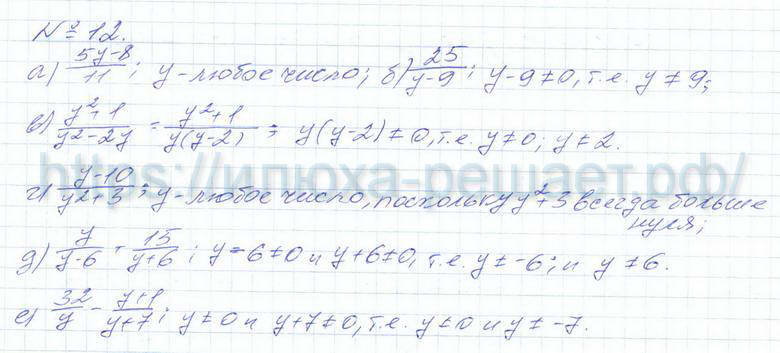 № 12.
а) (5y-8)/11; y-любое число; б) 25/(y-9); y-9≠0, т.е. y≠9;
в) (y²+1)/(y²-2y) = (y²+1)/(y(y-2)); y(y-2)≠0, т.е. y≠0; y≠2.
https://илюха-решает.рф/
г) (y-10)/(y²+3); y-любое число, поскольку y²+3 всегда больше
нуля;
д) y/(y-6) + 15/(y+6); y-6≠0 и y+6≠0, т.е. y≠-6; и y≠6.
е) 32/y - (y+1)/(y+7); y≠0 и y+7≠0, т.е. y≠0 и y≠-7.